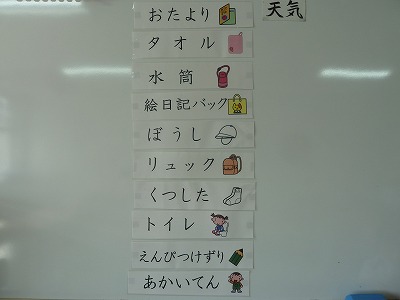 おたより
タオル
水筒
絵日記バック
ぼうし
リュック
くつした
トイレ
えんぴつけずり
あかいてん
天気